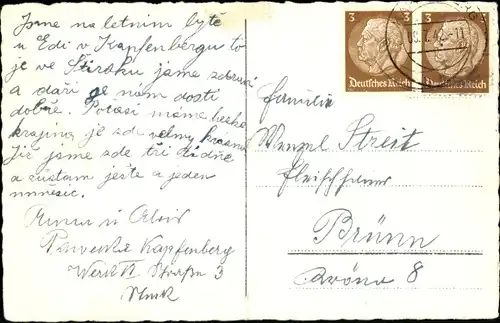 Jsme na letním bytě
u Edi v Kapfenbergu to
je ve Štirsku jsme zdraví
a daří se nám dosti
dobře. Počasí máme hezké
krajina je zde velmi krásná
Již jsme zde tři týdně
a zůstanu ještě a jeden
měsíc.
Kapfenberg
Werk VI Straße 3
3 3
Deutsches Reich Deutsches Reich
Familie
Wenzel Streit
Fleischhauer
Brünn
8